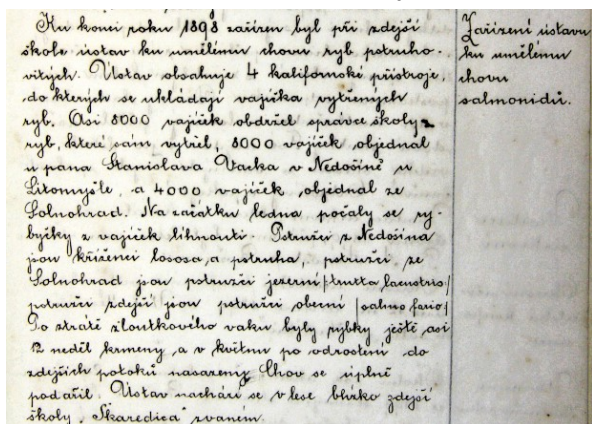 Ku konci roku 1898 zařízen byl při zdejší
škole ústav ku umělému chovu ryb pstruho-
vitých. Ústav obsahuje 4 kalifornské přístroje,
do kterých se ukládají vajíčka vytřených
ryb. Asi 8000 vajíček obdržel správce školy z
ryb, které sám vytřel, 8000 vajíček objednal
u pana Stanislava Vacka v Nedošíně u
Litomyšle, a 4000 vajíček objednal ze
Solnohrad. Na začátku ledna počaly se ry-
bičky z vajíček líhnouti. Pstruzi z Nedošína
jsou kříženci lososa a pstruha, pstruzi ze
Solnohrad jsou pstruzi jezerní /trutta lacustris/
pstruzi zdejší jsou pstruzi obecní /salmo fario/
Po ztrátě žloutkového vaku byly rybky ještě asi
2 neděl krmeny a v květnu po odrostení do
zdejších potoků nasazeny. Chov se úplně
podařil. Ústav nachází se v lese blízko zdejší
školy, "Skaredica" zvaném.
Zařízení ústavu
ku umělému
chovu
salmonidů.